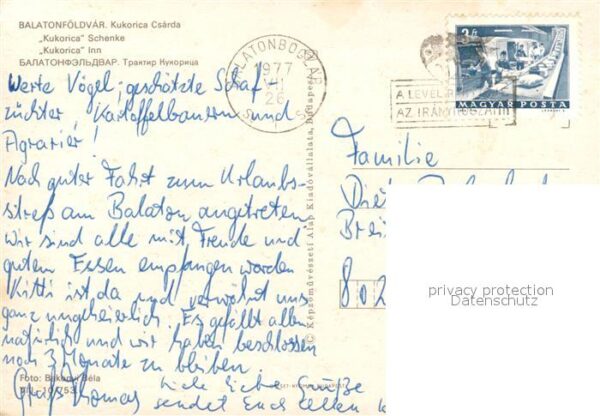 BALATONFÖLDVÁR. Kukorica Csárda
„Kukorica" Schenke
„Kukorica" Inn
БАЛАТОНФЭЛЬДВАР. Трактир Кукорица
Werte Vögel; geschätzte Schaf-
züchter, Kartoffelbauern und
Agrarier!
Nach guter Fahrt zum Urlaubs-
streß am Balaton angetreten
wir sind alle mit Freude und
gutem Essen empfangen worden
Kitti ist da und verwöhnt uns
ganz ungeheierlich. Es gefällt allen
natürlich und wir haben beschlossen
noch 3 Monate zu bleiben.
Viele liebe Grüße
Thomas sendet Euch allen
Foto: Bakonyi Béla
BALATONBOGLÁR
1977
VII
26
3 ft
MAGYAR POSTA
A LEVÉL
AZ IRÁNYÍTÓSZÁM
© Képzőművészeti Alap Kiadóvállalata, Budapest
Familie
802
privacy protection
Datenschutz